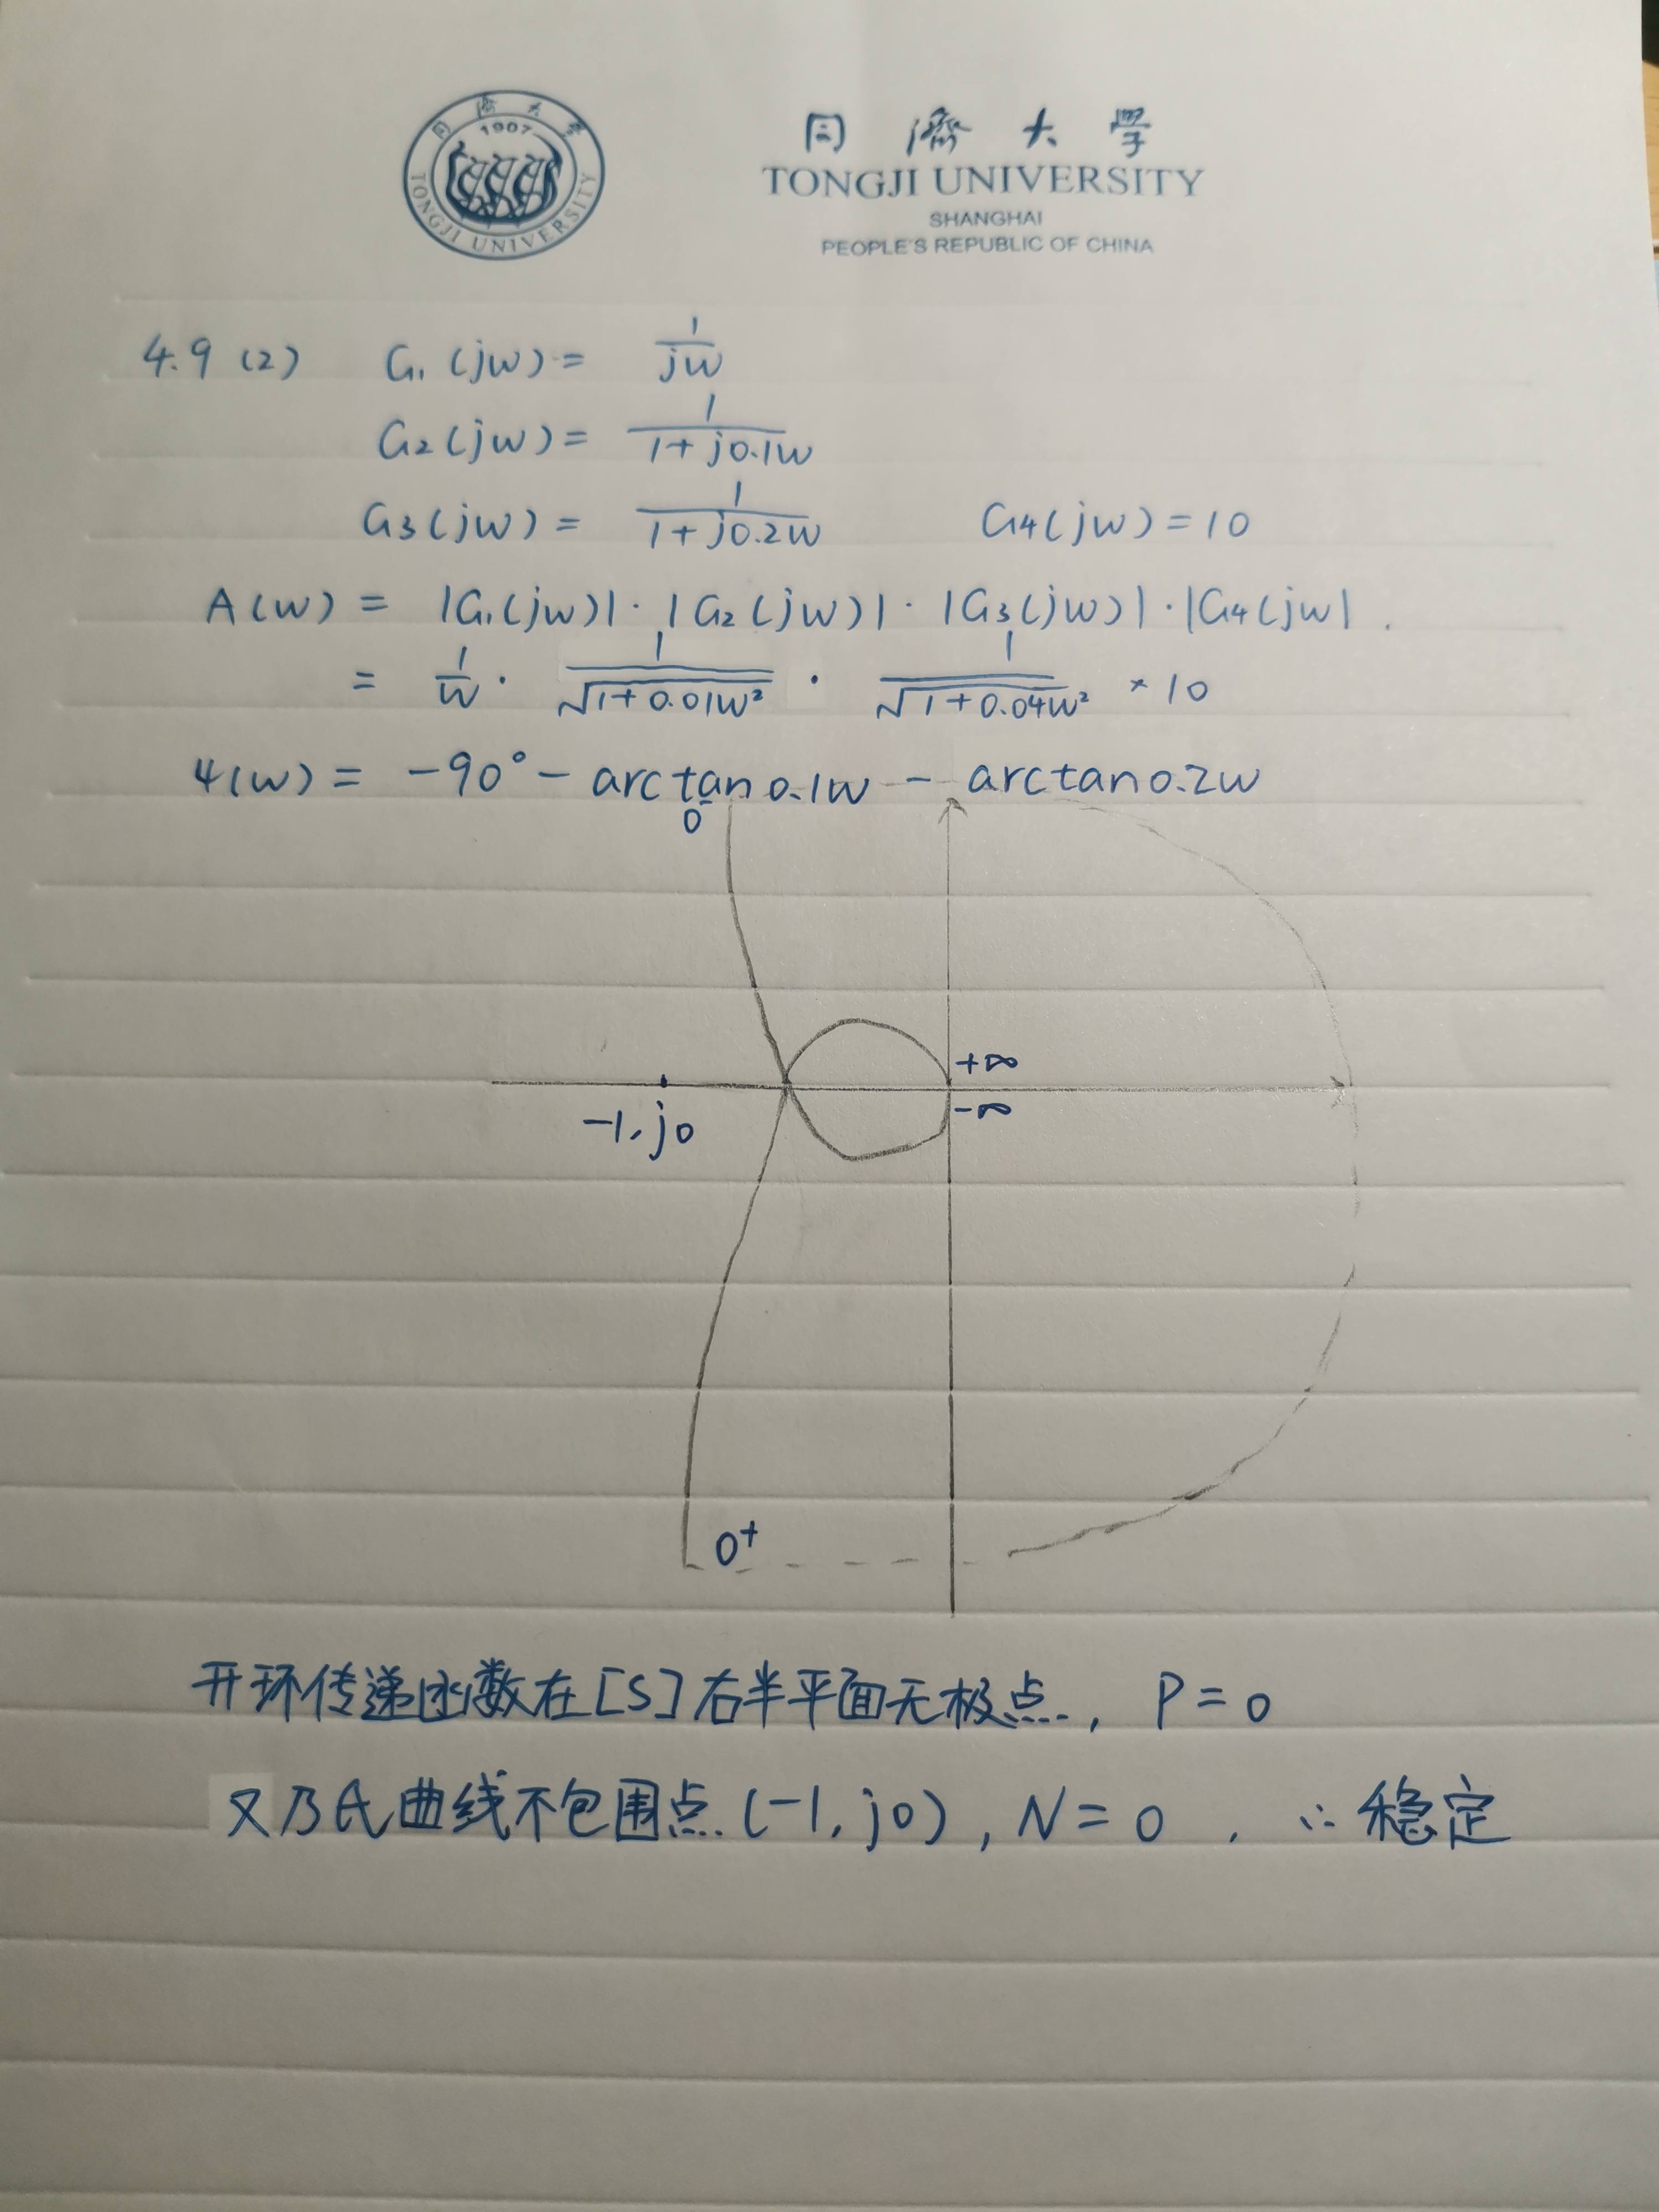 同濟大學
1907
TONGJI UNIVERSITY
同濟大學
TONGJI UNIVERSITY
SHANGHAI
PEOPLE'S REPUBLIC OF CHINA
4.9 (2) G₁(jw) = 1/jw
G₂(jw) = 1/(1+j0.1w)
G₃(jw) = 1/(1+j0.2w) G₄(jw) = 10
A(w) = |G₁(jw)| · |G₂(jw)| · |G₃(jw)| · |G₄(jw|.
= 1/w · 1/√(1+0.01w²) · 1/√(1+0.04w²) × 10
φ(w) = -90° - arctan0.1w - arctan0.2w
0⁻
+∞
-∞
-1, j0
0⁺
开环传递函数在[S]右半平面无极点, P = 0
又乃氏曲线不包围点(-1, j0), N = 0, ∴稳定